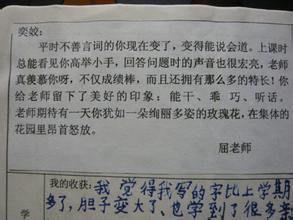 奕姣:
平时不善言词的你现在变了,变得能说会道。上课时
总能看见你高举小手,回答问题时的声音也很宏亮,老师
真羡慕你呀,不仅成绩棒,而且还拥有那么多的特长!你
给老师留下了美好的印象:能干、乖巧、听话。
老师期待有一天你犹如一朵绚丽多姿的玫瑰花,在集体的
花园里昂首怒放。
屈老师
学
我的收获:我觉得我写的字比上学期
多了,胆子变大了、也学到了很多